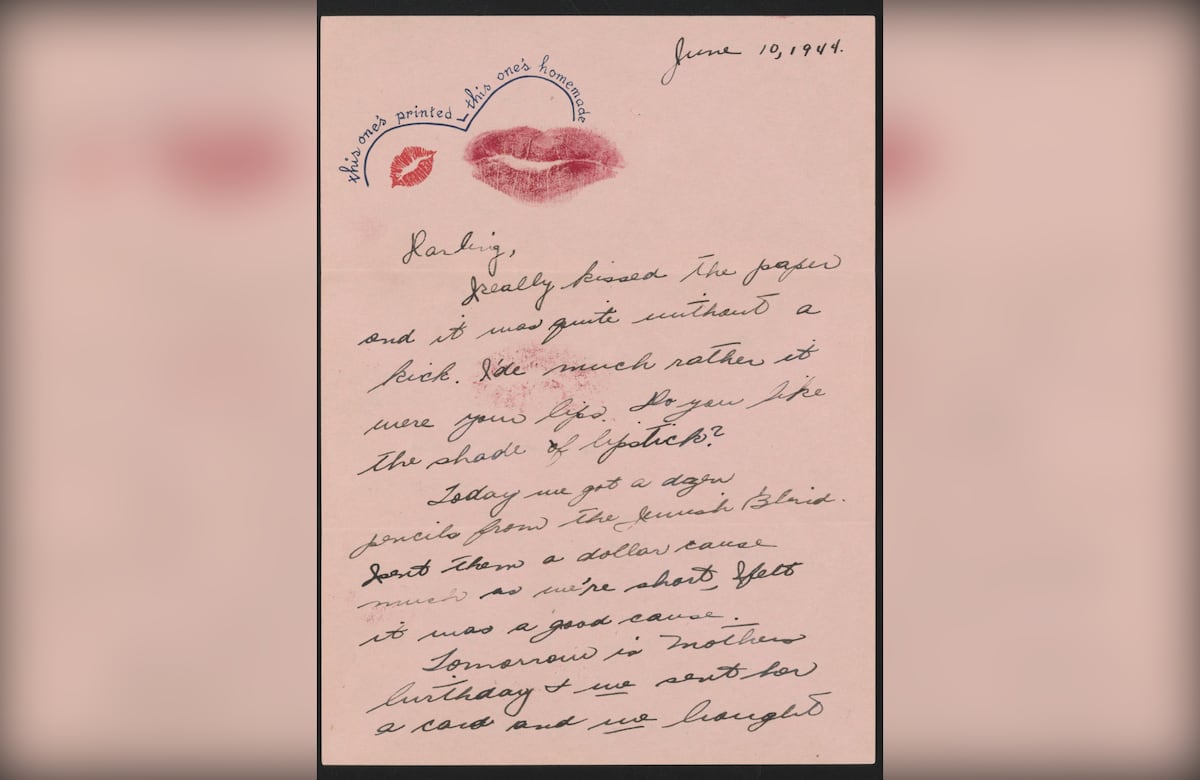 June 10, 1944.
this one's printed
this one's homemade
Darling,
I really kissed the paper
and it was quite without a
kick. I'de much rather it
were your lips. Do you like
the shade of lipstick?
Today we got a dozen
pencils from the Jewish Blind.
I sent them a dollar cause
much as we're short, I felt
it was a good cause.
Tomorrow is Mothers
birthday & we sent her
a card and we bought